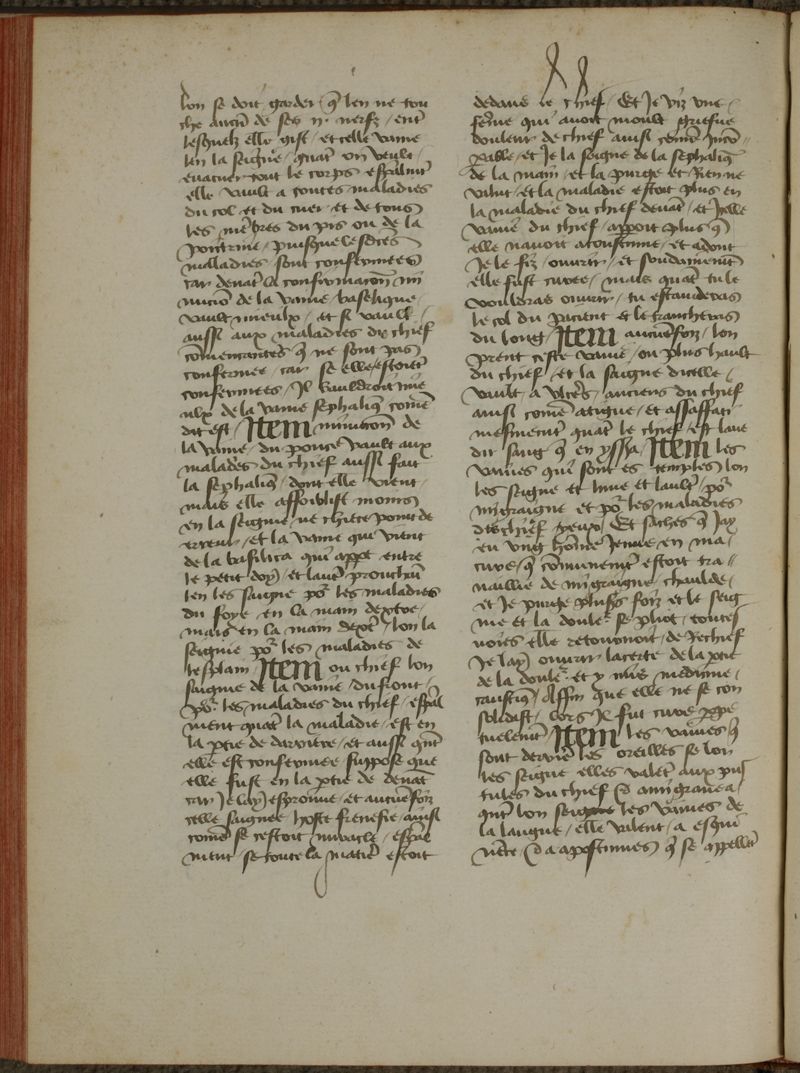 lon se doit garder q̃ len ne tou
che aucũ de ses nerfz / ent᷑
lesquelz elle gist / et celle vaine
len la seigne / quãt on veult /
evacuer tout le corps / espãlmt̃
elle vault a toutes maladies
du col et du cuer / et de tous
les mẽbres du pis ou de la
poitrine / puisque lesd̃ces
maladies sont confermees
car devãt la confirmacõn mi
nuciõ de la vaine / baselique /
vault mieulx / et si vault /
aussi aux maladies du chief
cõmencantes q̃ ne sont pas
confermee / car se elle estoiẽt
confermees / Il vauldroit mie
ulx de la vaine sephaliq̃ cõme
dit est / Item minucõn de
la vaine du poulce vault aux
malades du chief aussi fait
la sephaliq̃ / dont elle vient /
mais elle affoiblist moins
en la seigne / ne chiece point de
erreur / et la vaine qui vient
de la basilica qui appt entre
le petit doy / et lautr᷑ prouchai
len les saigne po᷑ les maladies
du foye / en la main dextre /
mais en la main / lon la
seigne po᷑ les maladies de
lesplain Item ou chief lon
saigne de la vaine du front /
po᷑ les maladies du chief / espãl
ment quãt la maladie / est en
la ꝑtie de darriere / et aussi qñt
elle est confermee suppose que
elle fust en la ꝑtie de devãt
car Je lay esprouve / et aucũefoiz
celle saignee hoste frenesie / ainsi
come se cestoit miracle / espãl
ment / se toute la matie᷑ estoit
dedans le chief / Et Je viz une /
feme qui avoit moult griefve
douleur de chief ainsi come
/ et Je la seigne de la sephaliq̃
de la main / et la purge et Rien ne
valut / et la maladie estoit plus en
la maladie du chief devãt / et Icelle
vaine du chief / appoit plus q̃
elle navoit acoustume / et adont
Je le fiz / ouvrir / et soudainemẽt
elle fust curee / mais quãt tu le
vouldras ouvrir / tu estandras
le col du pacient et le trancheras
du long / Item aucũefoiz / lon
prent ceste vaine / ou plus hault
du chief / et la saigne dicelle /
vault a ulce᷑s / anciens du chief
ainsi come atigne / et assaffati /
mesmemẽt quãt le chief est lave
du sang q̃ en yssra / Item les
vaines qui sont es temples lon
les seigne et lune et lault᷑ / po᷑
migraigne et po᷑ les maladies
des yeux / Et saches q̃ Jay
veu ung hõme Jeune en ma
cure / q̃ cõmunemẽt estoit tra
vaillie de migraigne / chaulde /
et Je purge plus᷑s foiz et le seig
ne et la doule᷑ se / toutes
voies elle retournoit / de Rechief
Je lay ouvrir lacerte de la ꝑtie
de la doule᷑ / et y mis medicine /
caustiq̃ / Affin que elle ne se con
solidast / Lors Il fut cure ꝑpe
tuelemẽt Item les vaines q̃
sont derrie᷑ les oreilles se lon
les seigne elles valẽt aux pus
tules du chief a migranea /
qñt lon seigne les vaines de
la langue / elle valent / a esqui
nẽce / a apostumes q̃ se appellẽt